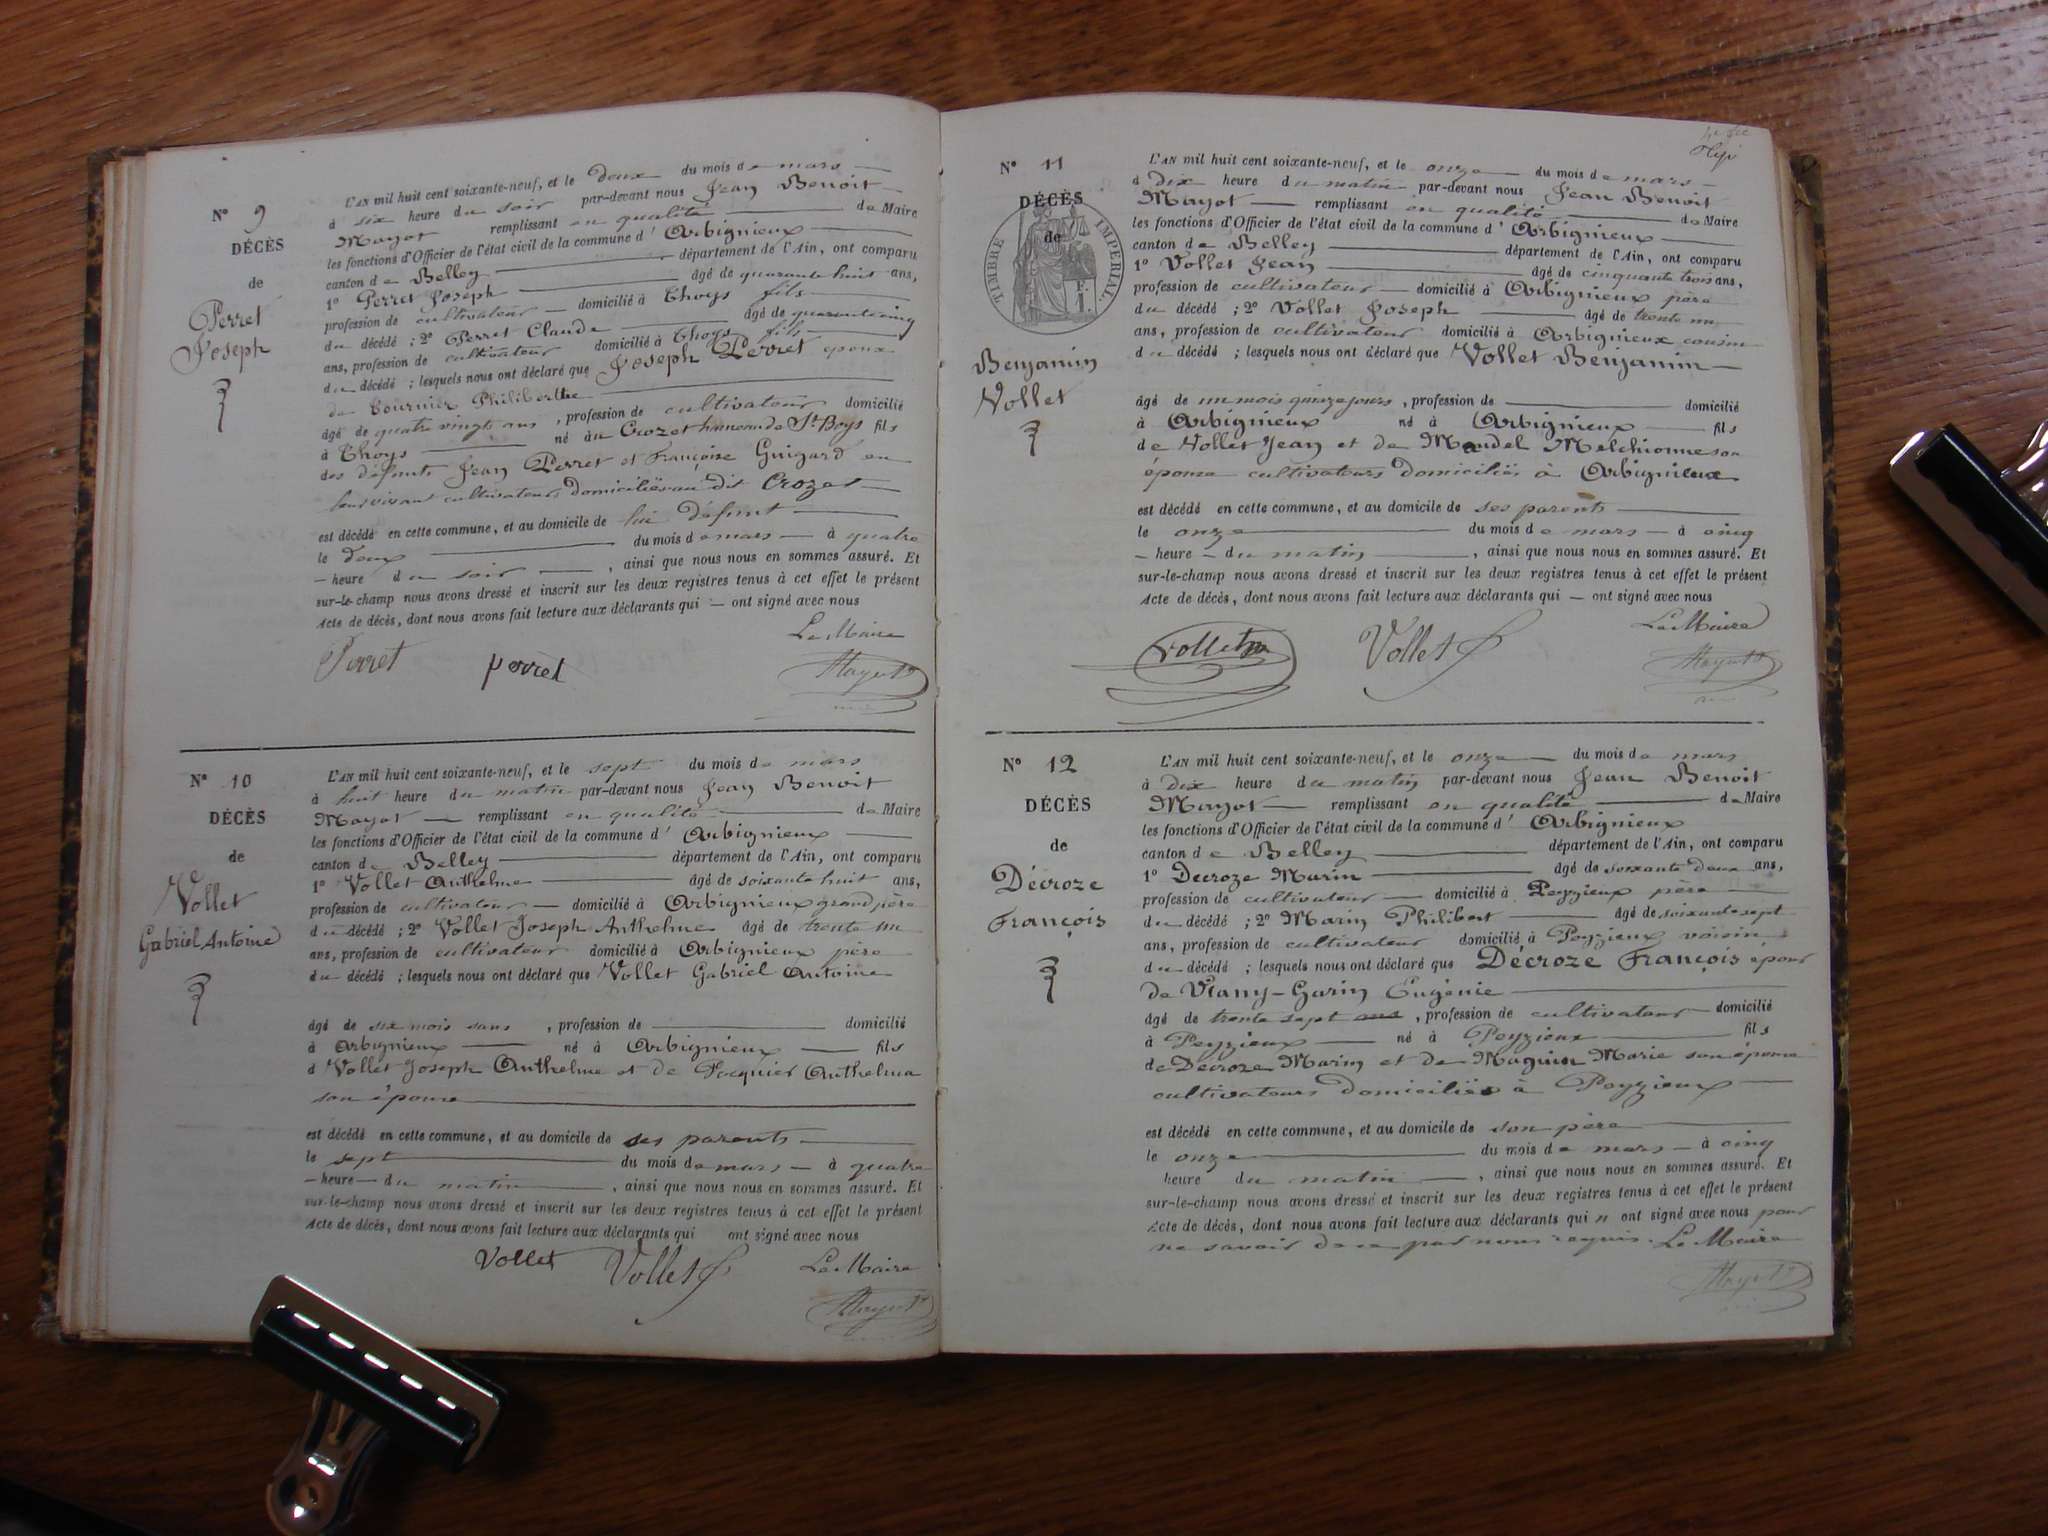 N° 9
DÉCÈS
de
Perret
Joseph
L'AN mil huit cent soixante-neuf, et le deux du mois de mars
à six heure du soir par-devant nous Jean Benoit
Mayot remplissant en qualité de Maire
les fonctions d'Officier de l'état civil de la commune d'Arbignieux
canton de Belley département de l'Ain, ont comparu
1° Perret Joseph âgé de quarante huit ans,
profession de cultivateur domicilié à Thoys fils
du décédé ; 2° Perret Claude âgé de quarante cinq
ans, profession de cultivateur domicilié à Thoys fils
du décédé ; lesquels nous ont déclaré que Joseph Perret époux
de Tournier Philiberthe
âgé de quatre vingts ans , profession de cultivateur domicilié
à Thoys né au Crozet hameau de St Boys fils
des défunts Jean Perret et Françoise Guigard en
leur vivant cultivateurs domiciliés au dit Crozet
est décédé en cette commune, et au domicile de lui défunt
le deux du mois de mars à quatre
heure du soir , ainsi que nous nous en sommes assuré. Et
sur-le-champ nous avons dressé et inscrit sur les deux registres tenus à cet effet le présent
Acte de décès, dont nous avons fait lecture aux déclarants qui ont signé avec nous
Le Maire
Perret perret Mayot
N° 10
DÉCÈS
de
Vollet
Gabriel Antoine
L'AN mil huit cent soixante-neuf, et le sept du mois de mars
à huit heure du matin par-devant nous Jean Benoit
Mayot remplissant en qualité de Maire
les fonctions d'Officier de l'état civil de la commune d'Arbignieux
canton de Belley département de l'Ain, ont comparu
1° Vollet Anthelme âgé de soixante huit ans,
profession de cultivateur domicilié à Arbignieux grand père
du décédé ; 2° Vollet Joseph Anthelme âgé de trente un
ans, profession de cultivateur domicilié à Arbignieux père
du décédé ; lesquels nous ont déclaré que Vollet Gabriel Antoine
âgé de six mois sans , profession de domicilié
à Arbignieux né à Arbignieux fils
d Vollet Joseph Anthelme et de Pocquier Anthelma
son épouse
est décédé en cette commune, et au domicile de ses parents
le sept du mois de mars à quatre
heure du matin , ainsi que nous nous en sommes assuré. Et
sur-le-champ nous avons dressé et inscrit sur les deux registres tenus à cet effet le présent
Acte de décès, dont nous avons fait lecture aux déclarants qui ont signé avec nous
Vollet Vollet Le Maire
Mayot
N° 11
DÉCÈS
de
TIMBRE IMPÉRIAL.
Benjamin
Vollet
L'AN mil huit cent soixante-neuf, et le onze du mois de mars
à dix heure du matin par-devant nous Jean Benoit
Mayot remplissant en qualité de Maire
les fonctions d'Officier de l'état civil de la commune d'Arbignieux
canton de Belley département de l'Ain, ont comparu
1° Vollet Jean âgé de cinquante trois ans,
profession de cultivateur domicilié à Arbignieux père
du décédé ; 2° Vollet Joseph âgé de trente un
ans, profession de cultivateur domicilié à Arbignieux cousin
du décédé ; lesquels nous ont déclaré que Vollet Benjamin
âgé de un mois quinze jours , profession de domicilié
à Arbignieux né à Arbignieux fils
de Vollet Jean et de Maudel Melchionne son
épouse cultivateurs domiciliés à Arbignieux
est décédé en cette commune, et au domicile de ses parents
le onze du mois de mars à cinq
heure du matin , ainsi que nous nous en sommes assuré. Et
sur-le-champ nous avons dressé et inscrit sur les deux registres tenus à cet effet le présent
Acte de décès, dont nous avons fait lecture aux déclarants qui ont signé avec nous
Le Maire
Vollet Vollet Mayot
N° 12
DÉCÈS
de
Décroze
François
L'AN mil huit cent soixante-neuf, et le onze du mois de mars
à dix heure du matin par-devant nous Jean Benoit
Mayot remplissant en qualité de Maire
les fonctions d'Officier de l'état civil de la commune d'Arbignieux
canton de Belley département de l'Ain, ont comparu
1° Decroze Marin âgé de soixante deux ans,
profession de cultivateur domicilié à Peyzieux père
du décédé ; 2° Marin Philibert âgé de soixante sept
ans, profession de cultivateur domicilié à Peyzieux voisin
du décédé ; lesquels nous ont déclaré que Décroze François époux
de Viany-Garin Eugénie
âgé de trente sept ans , profession de cultivateur domicilié
à Peyzieux né à Peyzieux fils
de Decroze Marin et de Magnin Marie son épouse
cultivateurs domiciliés à Peyzieux
est décédé en cette commune, et au domicile de son père
le onze du mois de mars à cinq
heure du matin , ainsi que nous nous en sommes assuré. Et
sur-le-champ nous avons dressé et inscrit sur les deux registres tenus à cet effet le présent
Acte de décès, dont nous avons fait lecture aux déclarants qui n ont signé avec nous pour
ne savoir de ce par nous requis. Le Maire
Mayot